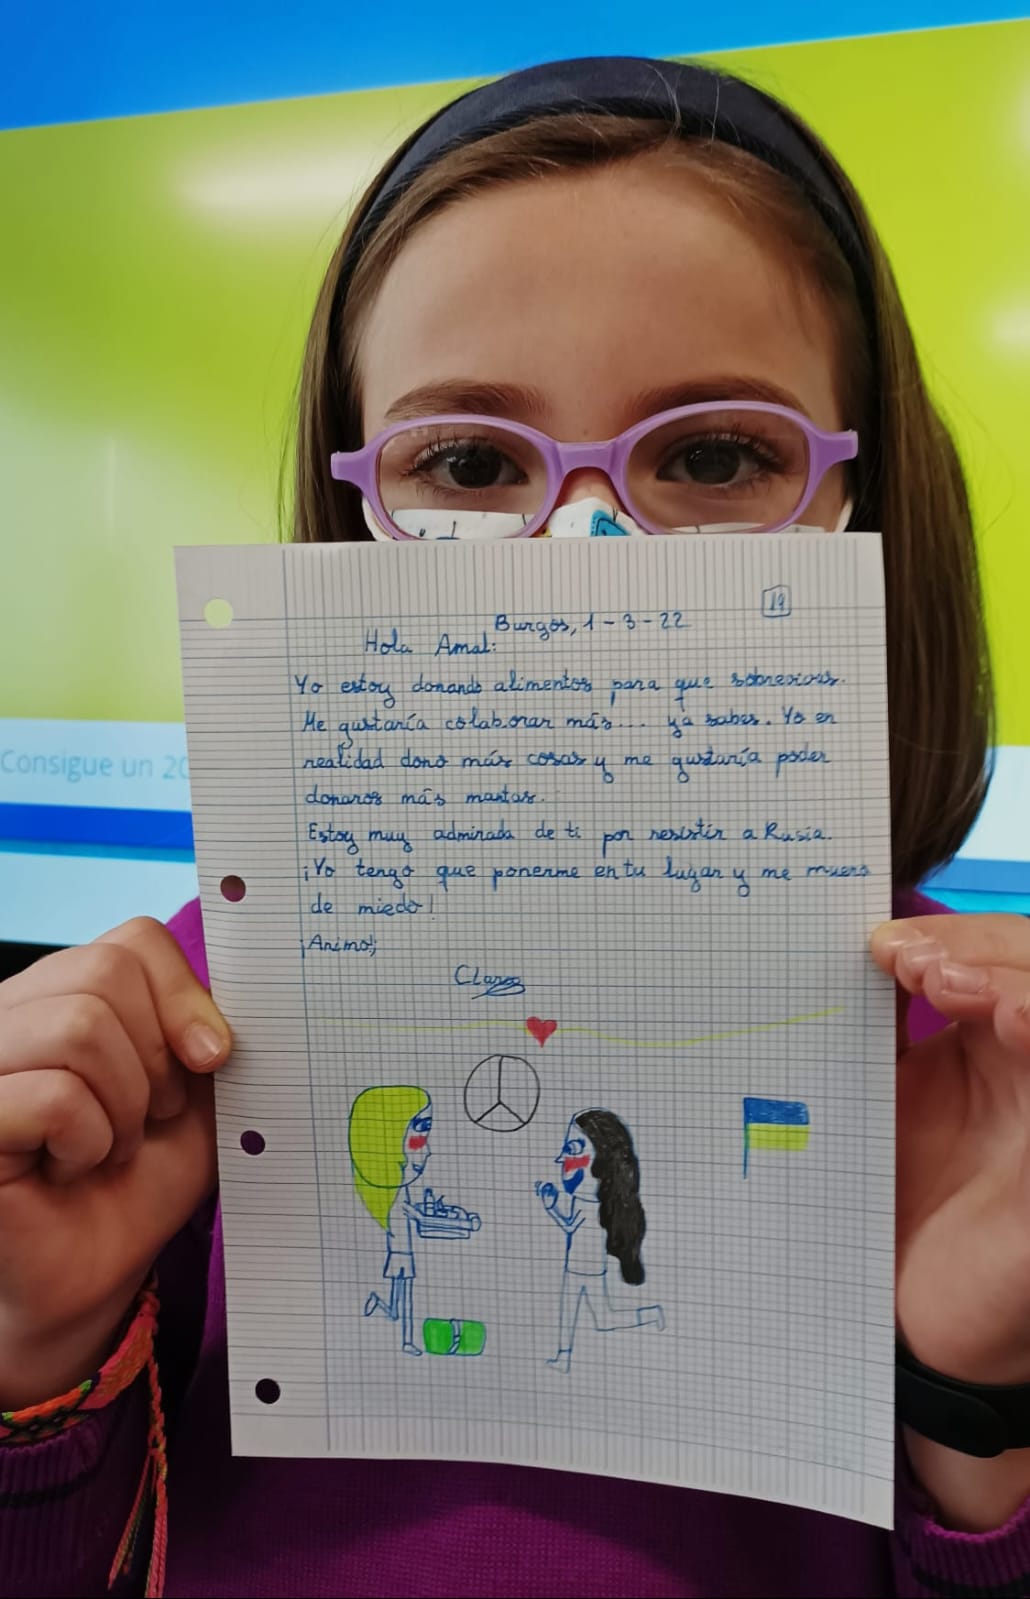 19
Burgos, 1-3-22
Hola Amal:
Yo estoy donando alimentos para que
Me gustaría colaborar más... ya sabes. Yo en
realidad dono más cosas y me gustaría poder
donaros más mantas.
Estoy muy admirada de ti por resistir a Rusia.
¡Yo tengo que ponerme en tu lugar y me muero
de miedo!
¡Animo!;
Clara
Consigue un 20